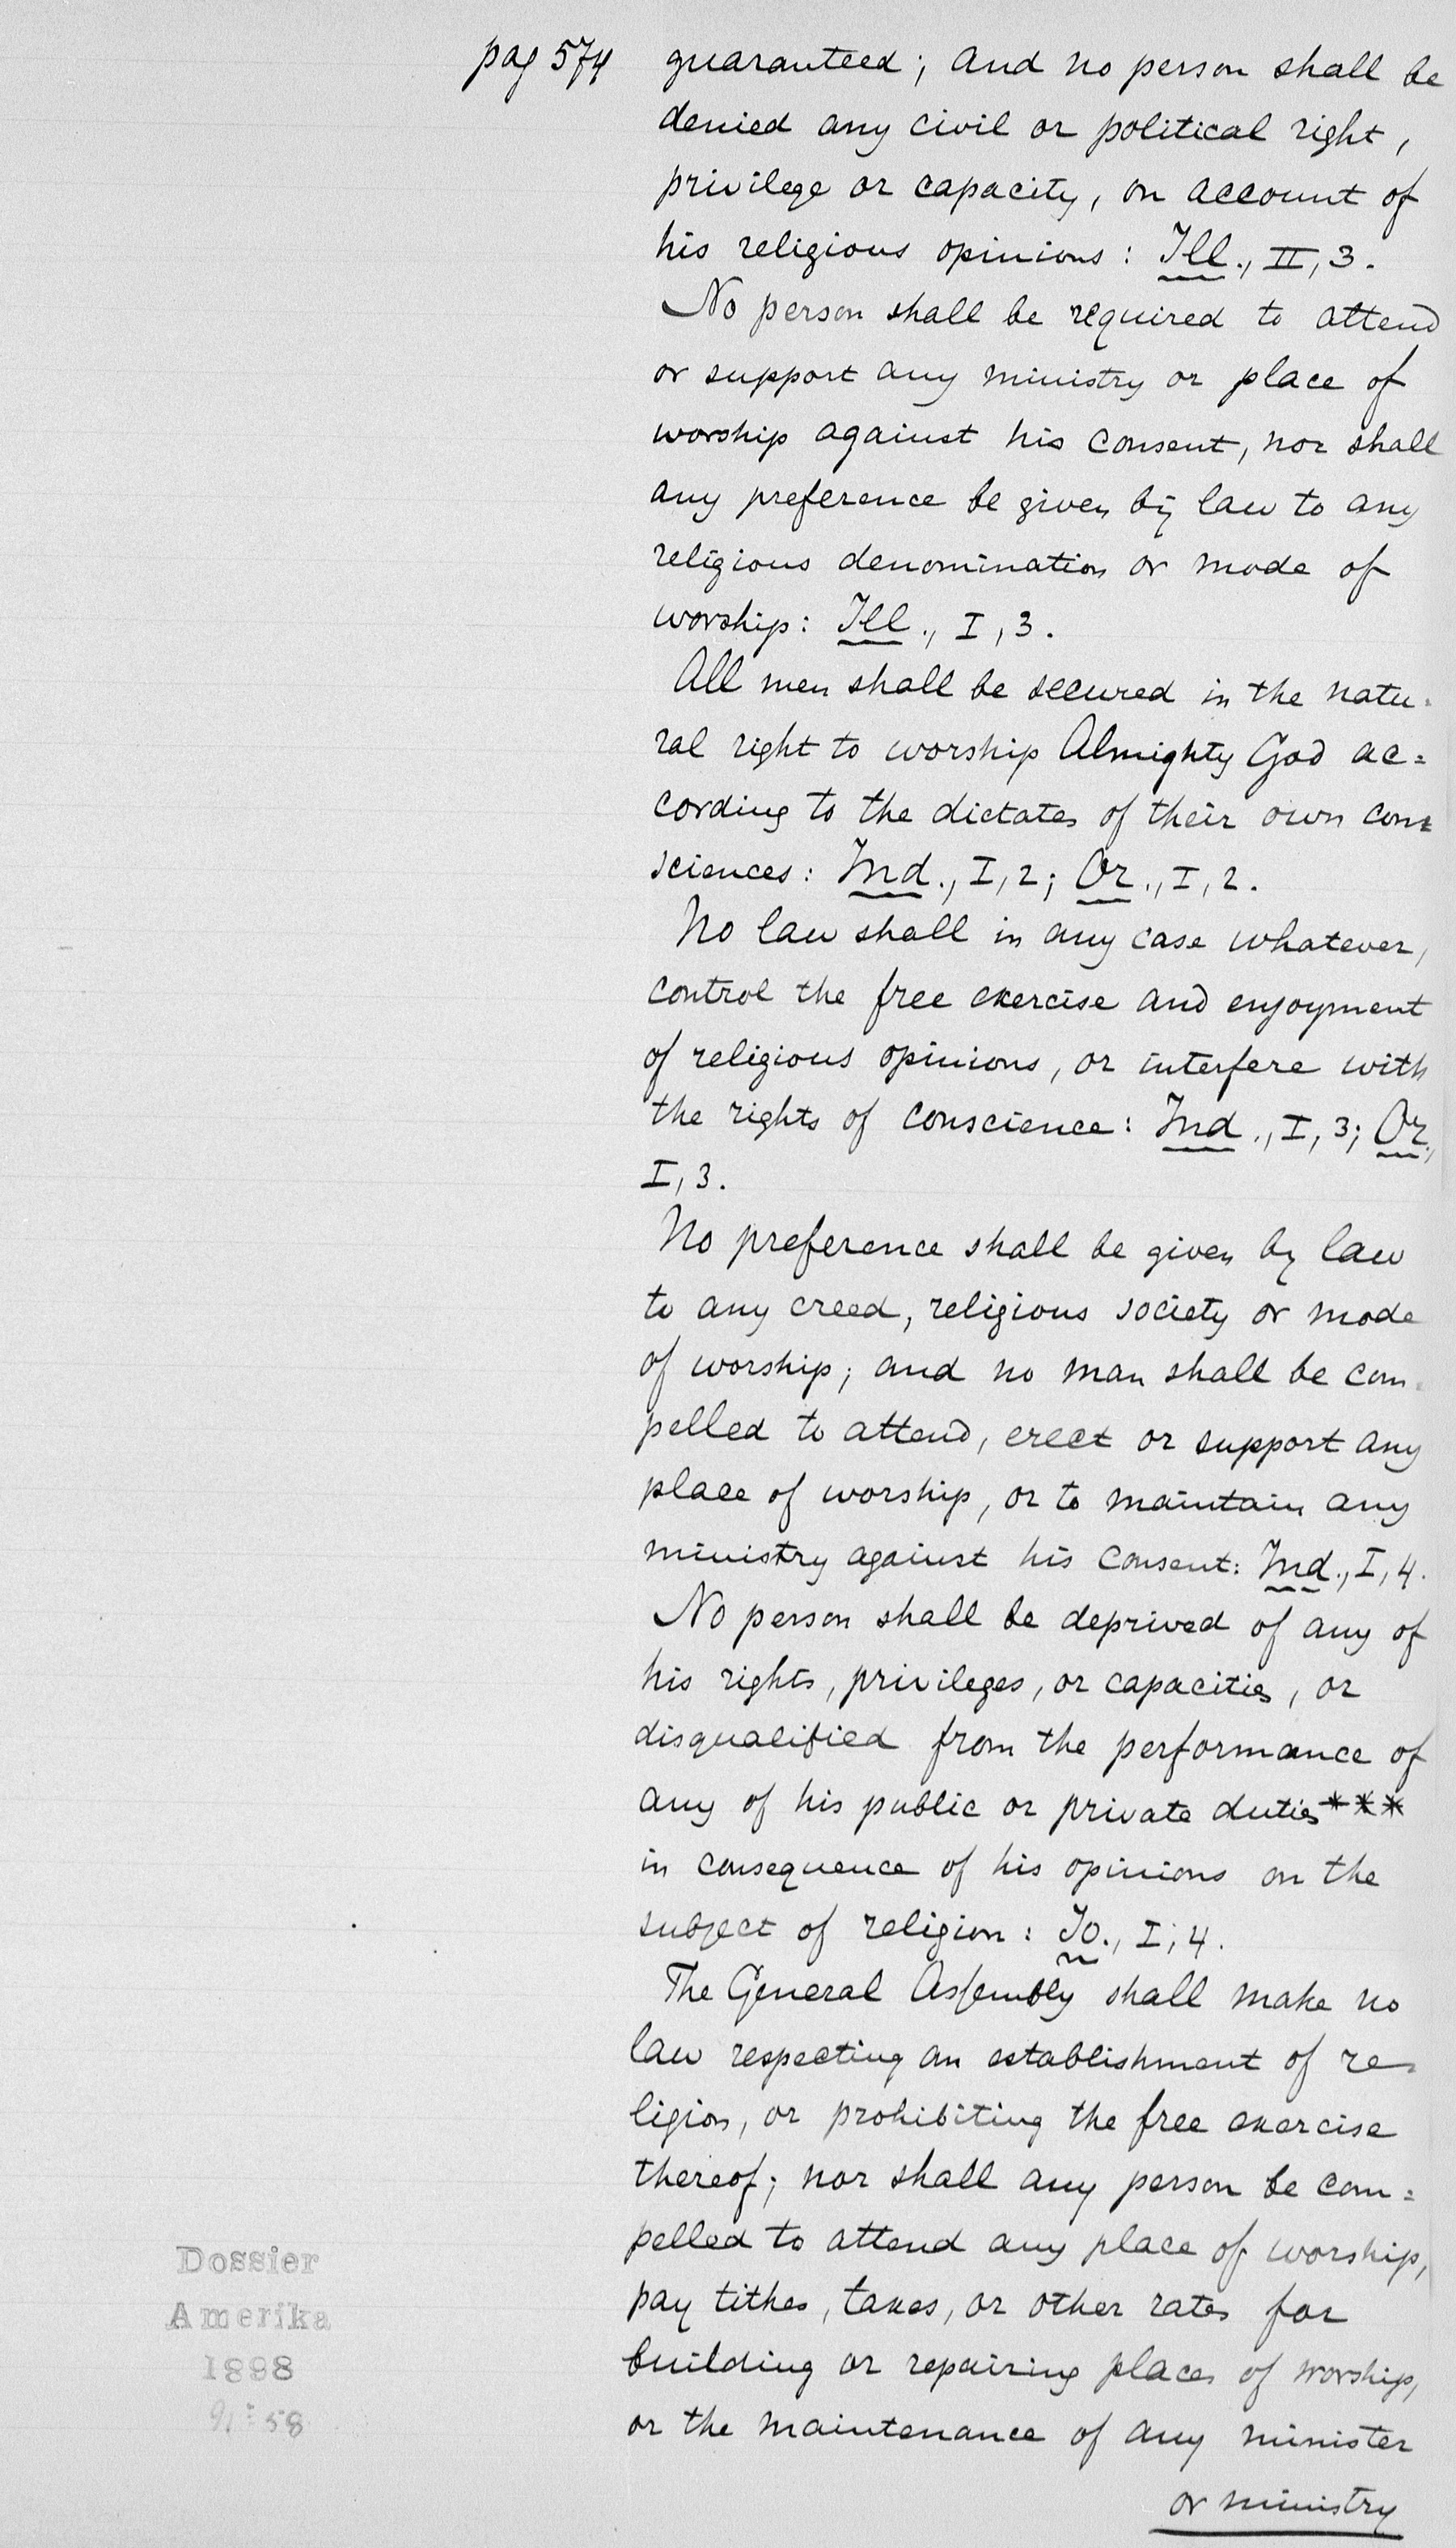 pag 574
guaranteed; and no person shall be
denied any civil or political right,
privilege or capacity, on account of
his religious opinions: Ill., II, 3.
No person shall be required to attend
or support any ministry or place of
worship against his consent, nor shall
any preference be given by law to any
religious denomination or mode of
worship: Ill., I, 3.
All men shall be secured in the natu-
ral right to worship Almighty God ac=
cording to the dictates of their own con=
sciences: Ind., I, 2; Or., I, 2.
No law shall in any case whatever,
control the free exercise and enjoyment
of religious opinions, or interfere with
the rights of conscience: Ind., I, 3; Or.,
I, 3.
No preference shall be given by law
to any creed, religious society or mode
of worship; and no man shall be com-
pelled to attend, erect or support any
place of worship, or to maintain any
ministry against his consent: Ind., I, 4.
No person shall be deprived of any of
his rights, privileges, or capacities, or
disqualified from the performance of
any of his public or private duties ***
in consequence of his opinions on the
subject of religion: Io., I, 4.
The General Assembly shall make no
law respecting an establishment of re-
ligion, or prohibiting the free exercise
thereof; nor shall any person be com=
pelled to attend any place of worship,
pay tithes, taxes, or other rates for
building or repairing places of worship,
or the maintenance of any minister
or ministry
Dossier
Amerika
1898